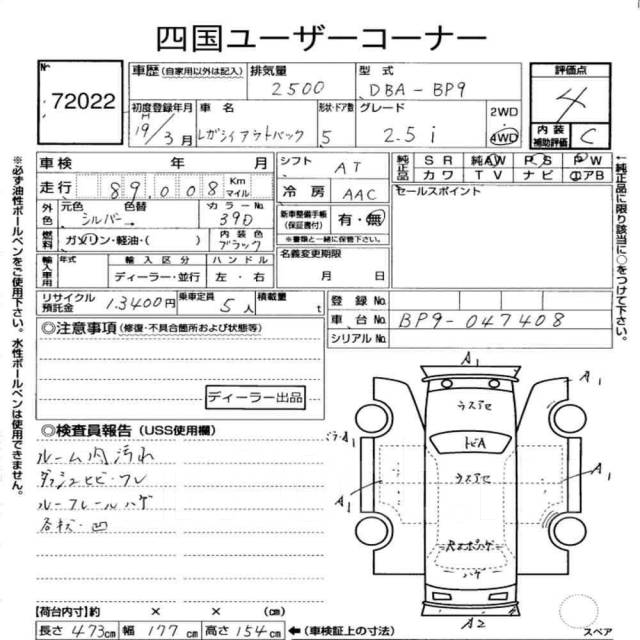 四国ユーザーコーナー
No 72022
車歴 (自家用以外は記入) 排気量 2500 型式 DBA-BP9 評価点 4
初度登録年月 H19/3月 車名 レガシィアウトバック 形状・ドア数 5 グレード 2.5i 2WD 4WD
内装補助評価 C
車検 年 月 シフト AT 純正品 SR 純正AW PS PW
走行 89,008 Km マイル 冷房 AAC 純正品 カワ TV ナビ エアB
外色 元色 シルバー 色替 カラーNo. 39D 新車整備手帳(保証書付) 有・無 セールスポイント
燃料 ガソリン・軽油・( ) 内装色 ブラック ※書類と一緒に保管下さい。
輸入車用 年式 輸入区分 ハンドル 名義変更期限
ディーラー・並行 左・右 月 日
リサイクル預託金 13400円 乗車定員 5人 積載量 t 登録No.
◎注意事項 (修復・不具合箇所および状態等) 車台No. BP9-047408
シリアルNo.
ディーラー出品
◎検査員報告 (USS使用欄)
ルーム内汚れ
ダッシュヒビ・フレ
ルーフレールハゲ
各杖・凹
A1
ウスアセ
A1
トビA
A1
ウスアセ
A1
A1
ハゲ
A2
スペア
【荷台内寸】約 × × (cm)
長さ 473cm 幅 177cm 高さ 154cm ←(車検証上の寸法)
※必ず油性ボールペンをご使用下さい。水性ボールペンは使用できません。
←純正品に限り該当に○をつけて下さい。